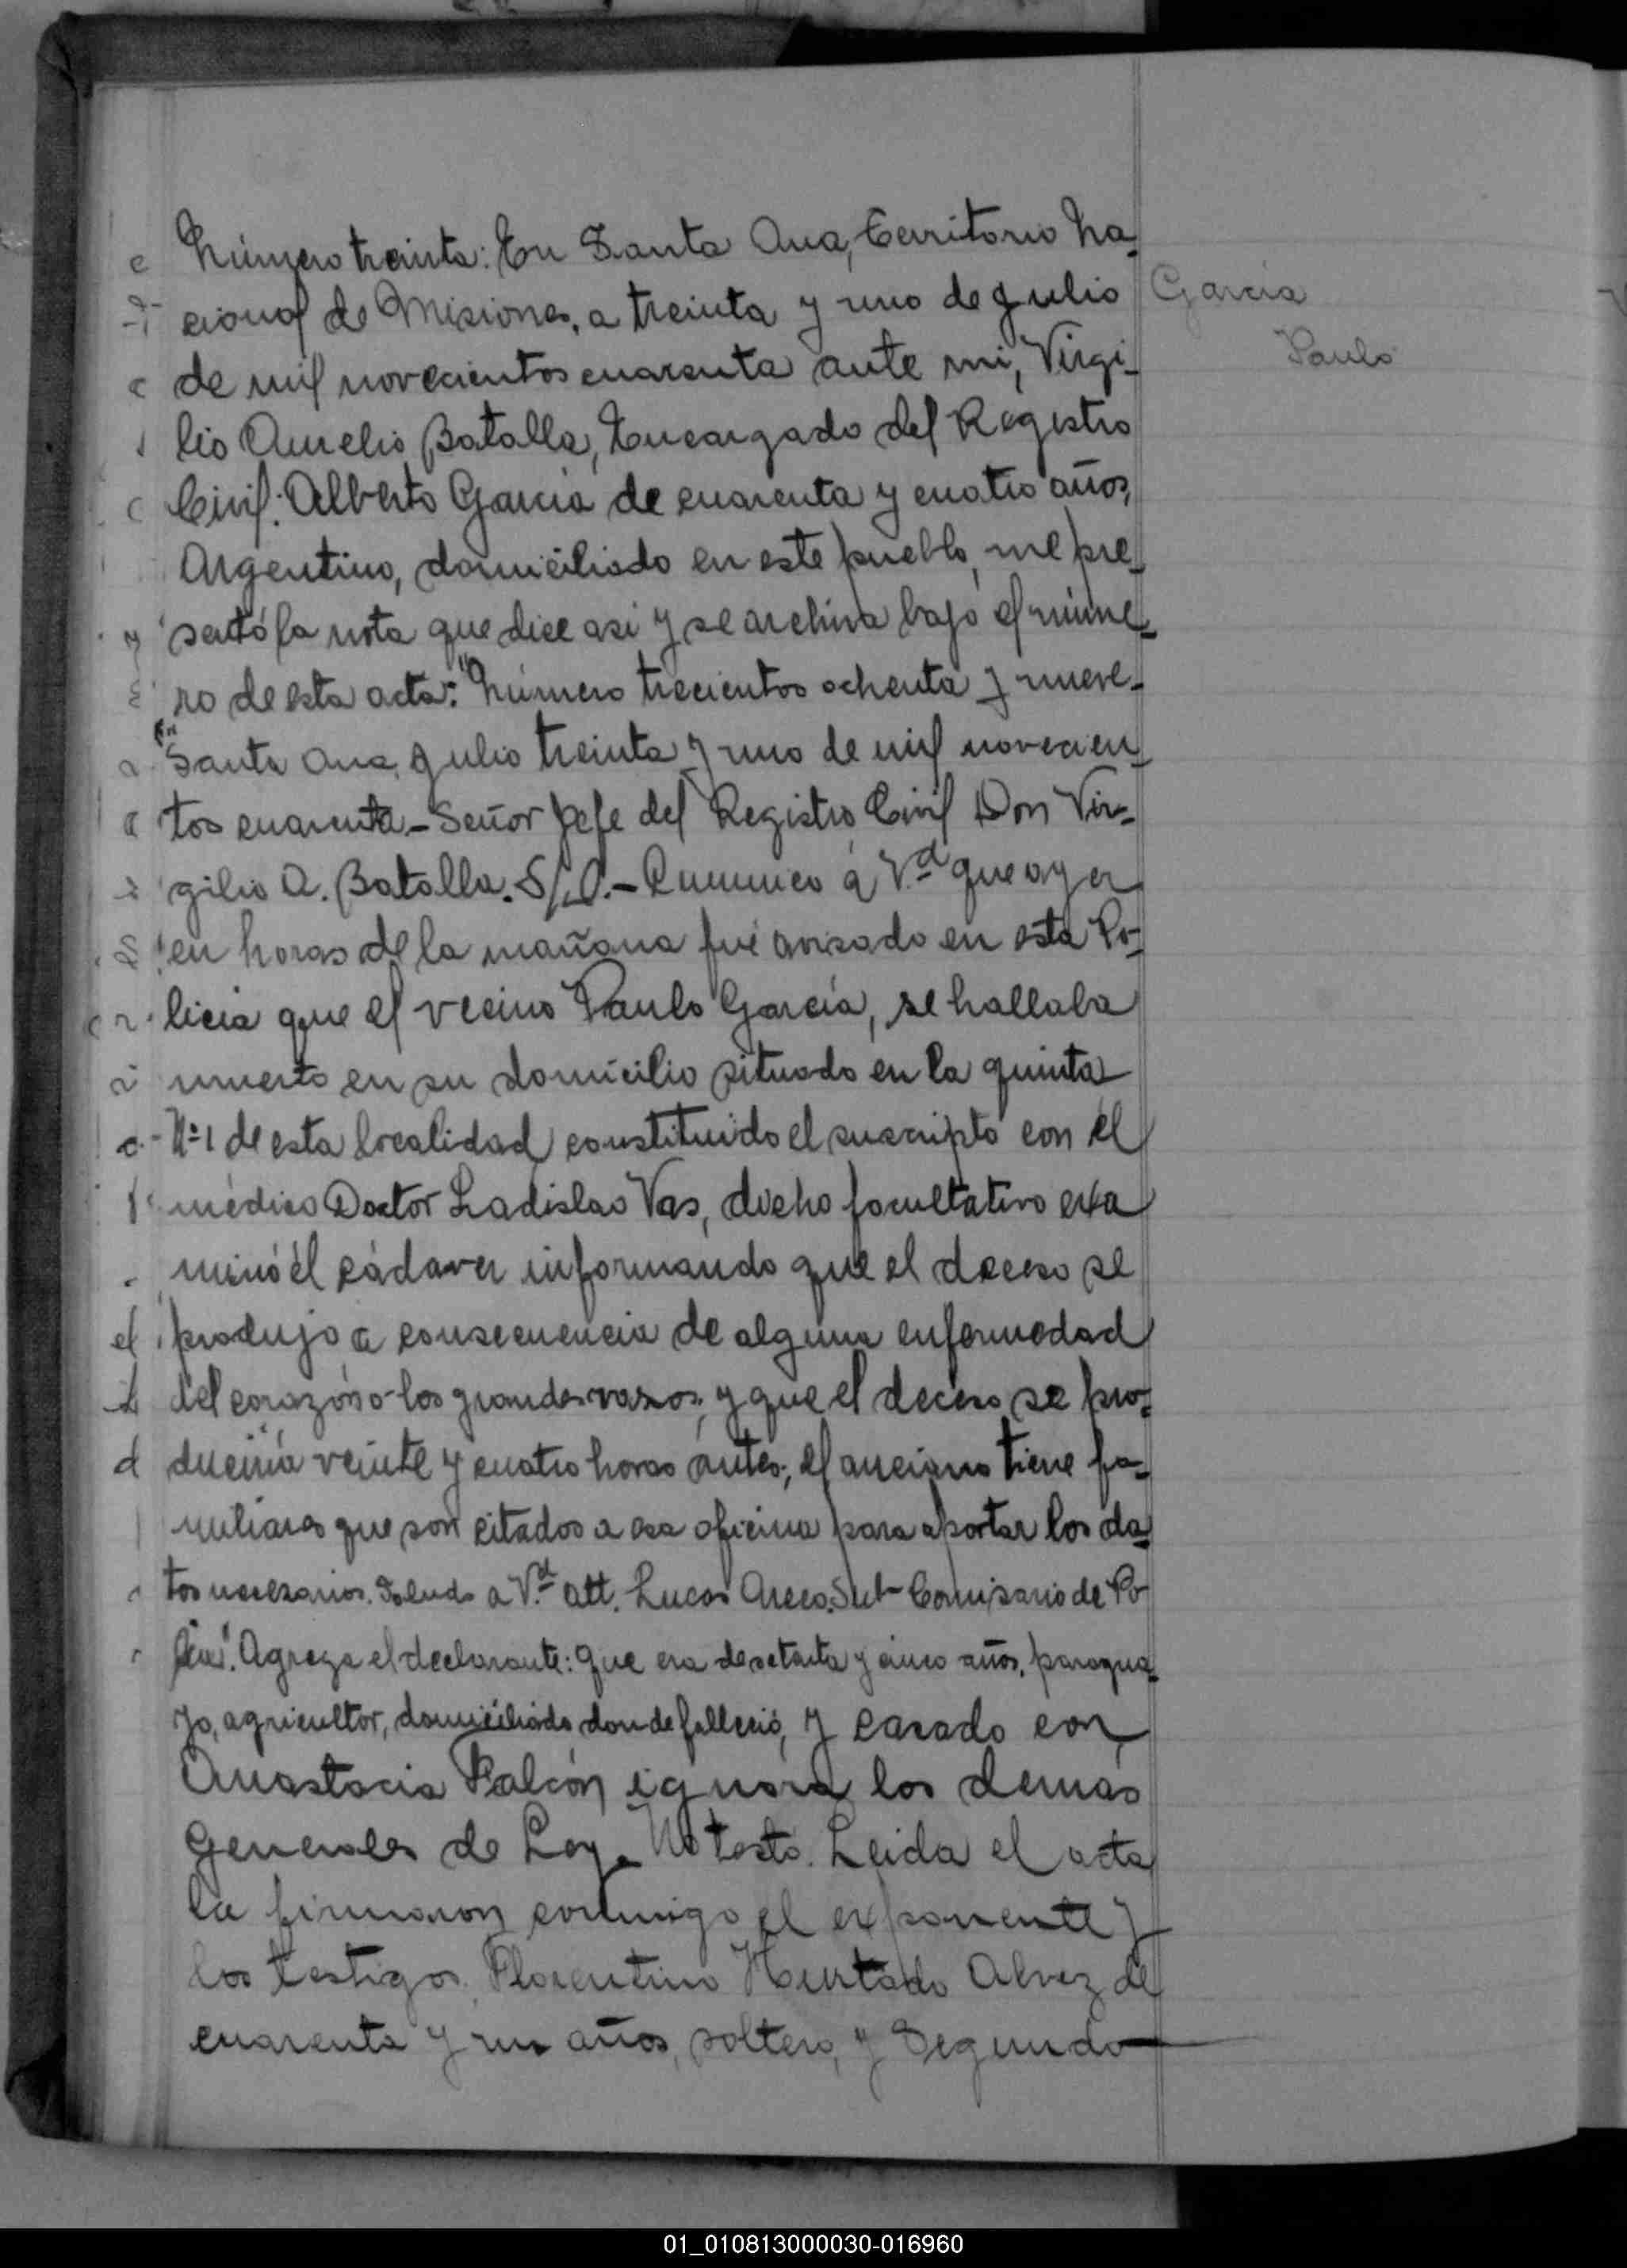 Número treinta: En Santa Ana, Territorio Na-
cional de Misiones, a treinta y uno de Julio
García
de mil novecientos cuarenta ante mi, Virgi-
Paulo
lio Aurelio Batalla, Encargado del Registro
Civil: Alberto García de cuarenta y cuatro años,
Argentino, domiciliado en este pueblo, me pre-
sentó la nota que dice asi y se archiva bajo el núme-
ro de esta acta: "Número trecientos ochenta y nueve-
Santa Ana, Julio treinta y uno de mil novecien-
tos cuarenta - Señor Jefe del Registro Civil Don Vir-
gilio A. Batalla. S/D. - Comunico á Vd que ayer
en horas de la mañana fué avisado en esta Po-
licia que el vecino Paulo García, se hallaba
muerto en su domicilio situado en la quinta
Nº 1 de esta localidad constituido el suscripto con el
médico Doctor Ladislao Vas, dicho facultativo exa
minó él cádaver informando que el deceso se
produjo a consecuencia de alguna enfermedad
del corazón o los grandes vasos, y que el deceso se pro-
duciria veinte y cuatro horas antes; el anciano tiene fa-
miliares que son citados a esa oficina para aportar los da-
tos necesarios. Saludo a Vd att. Lucas Areco. Sub-Comisario de Po-
licia". Agrega el declarante: que era de setenta y cinco años, paragua-
yo, agricultor, domiciliado donde falleció, y casado con
Anastacia Falcón ignora los demás
Generales de Ley. No testó. Leida el acta
la firmaron conmigo el exponente y
los testigos, Florentino Hurtado Alvez de
cuarenta y un años, soltero, y Segundo
01_010813000030-016960